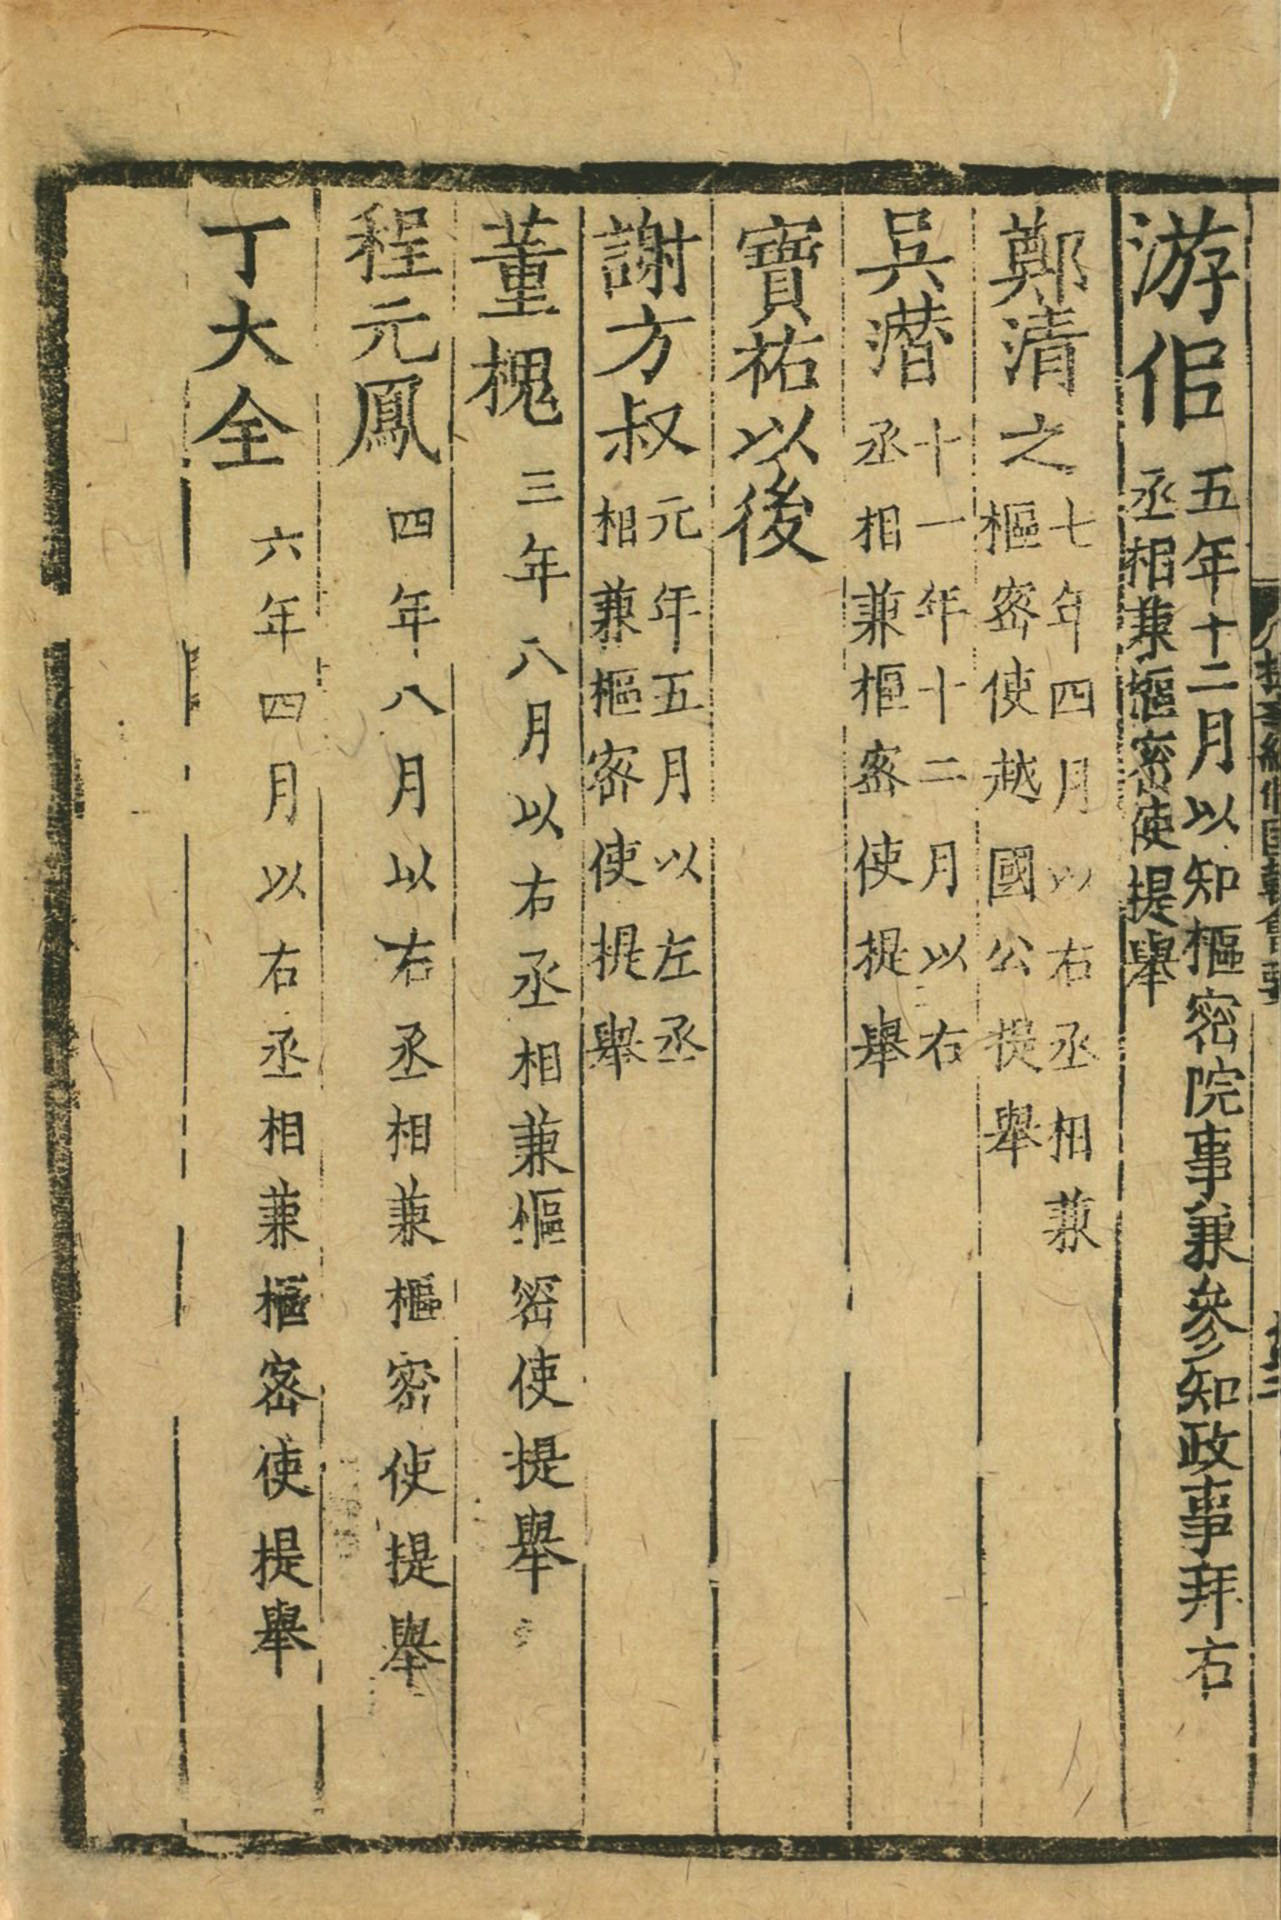 游佀五年十二月以知樞密院事兼參知政事拜右丞相兼樞密使提舉
鄭清之七年四月以右丞相兼樞密使越國公提舉
吳潛十一年十二月以右丞相兼樞密使提舉
寶祐以後
謝方叔元年五月以左丞相兼樞密使提舉
董槐三年八月以右丞相兼樞密使提舉
程元鳳四年八月以右丞相兼樞密使提舉
丁大全六年四月以右丞相兼樞密使提舉